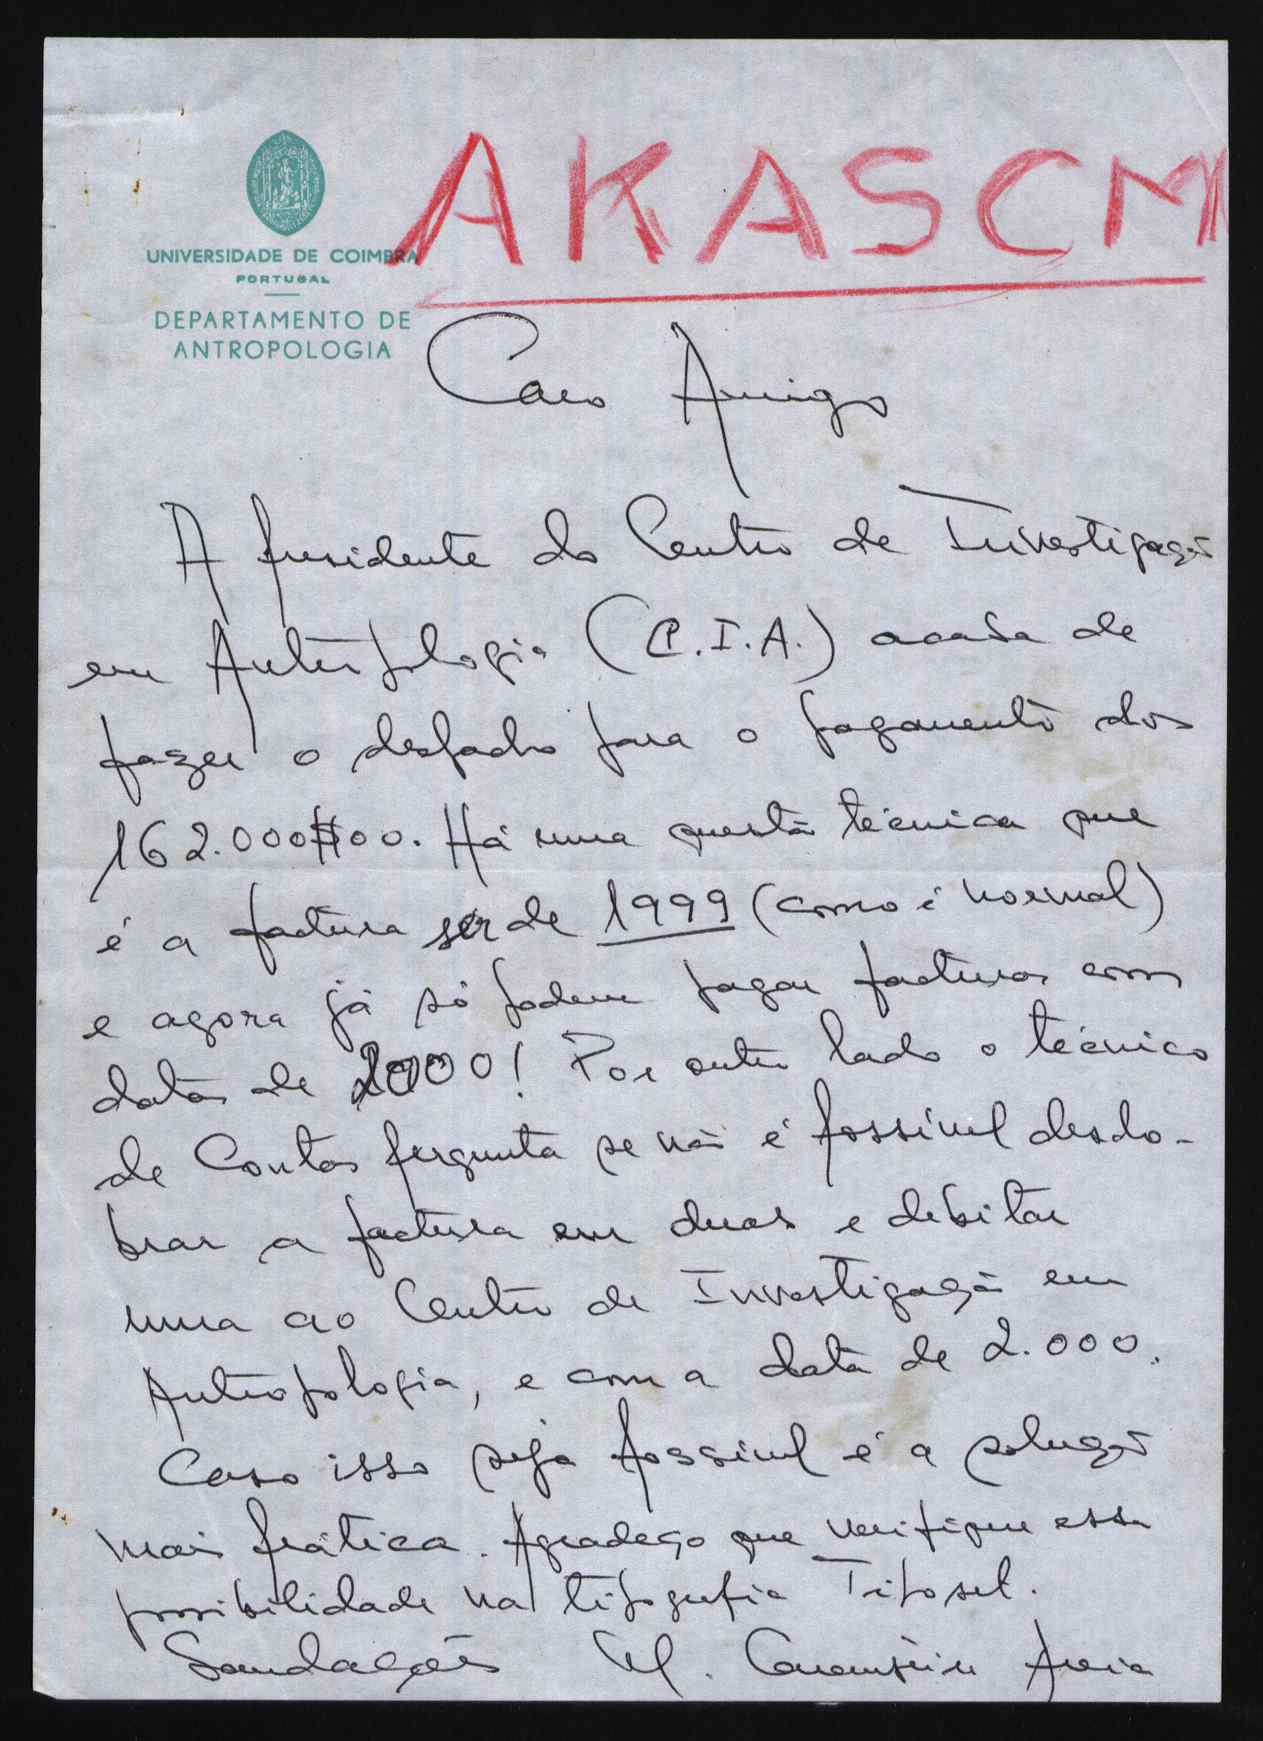 AKASCM
UNIVERSIDADE DE COIMBRA
PORTUGAL
DEPARTAMENTO DE
ANTROPOLOGIA
Caro Amigo
A presidente do Centro de Investigação
em Antropologia (C.I.A.) acaba de
fazer o despacho para o pagamento dos
162.000$00. Há uma questão técnica que
é a factura ser de 1999 (como é normal)
e agora já só podem pagar facturas com
datas de 2000! Por outro lado o técnico
de Contas pergunta se não é possível desdo-
brar a factura em duas e debitar
uma ao Centro de Investigação em
Antropologia, e com a data de 2.000.
Caso isso seja possível é a solução
mais prática. Agradeço que verifique essa
possibilidade na tipografia Tiposet.
Saudações M. Areia